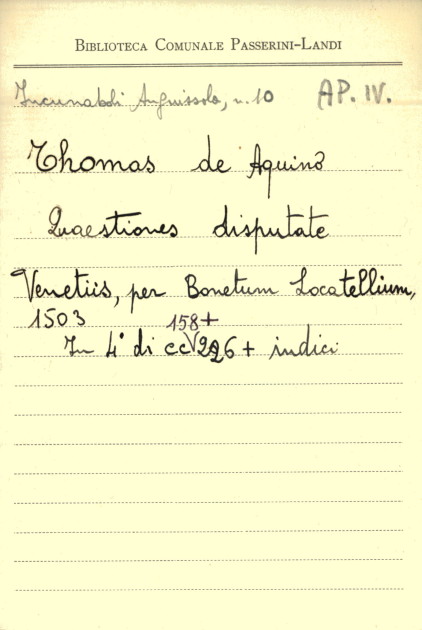 BIBLIOTECA COMUNALE PASSERINI-LANDI
Incunaboli Anguissola, n. 10 AP. IV.
Thomas de Aquino
Quaestiones disputate
Venetiis, per Bonetum Locatellium,
1503 158+
In 4° di cc 226 + indici